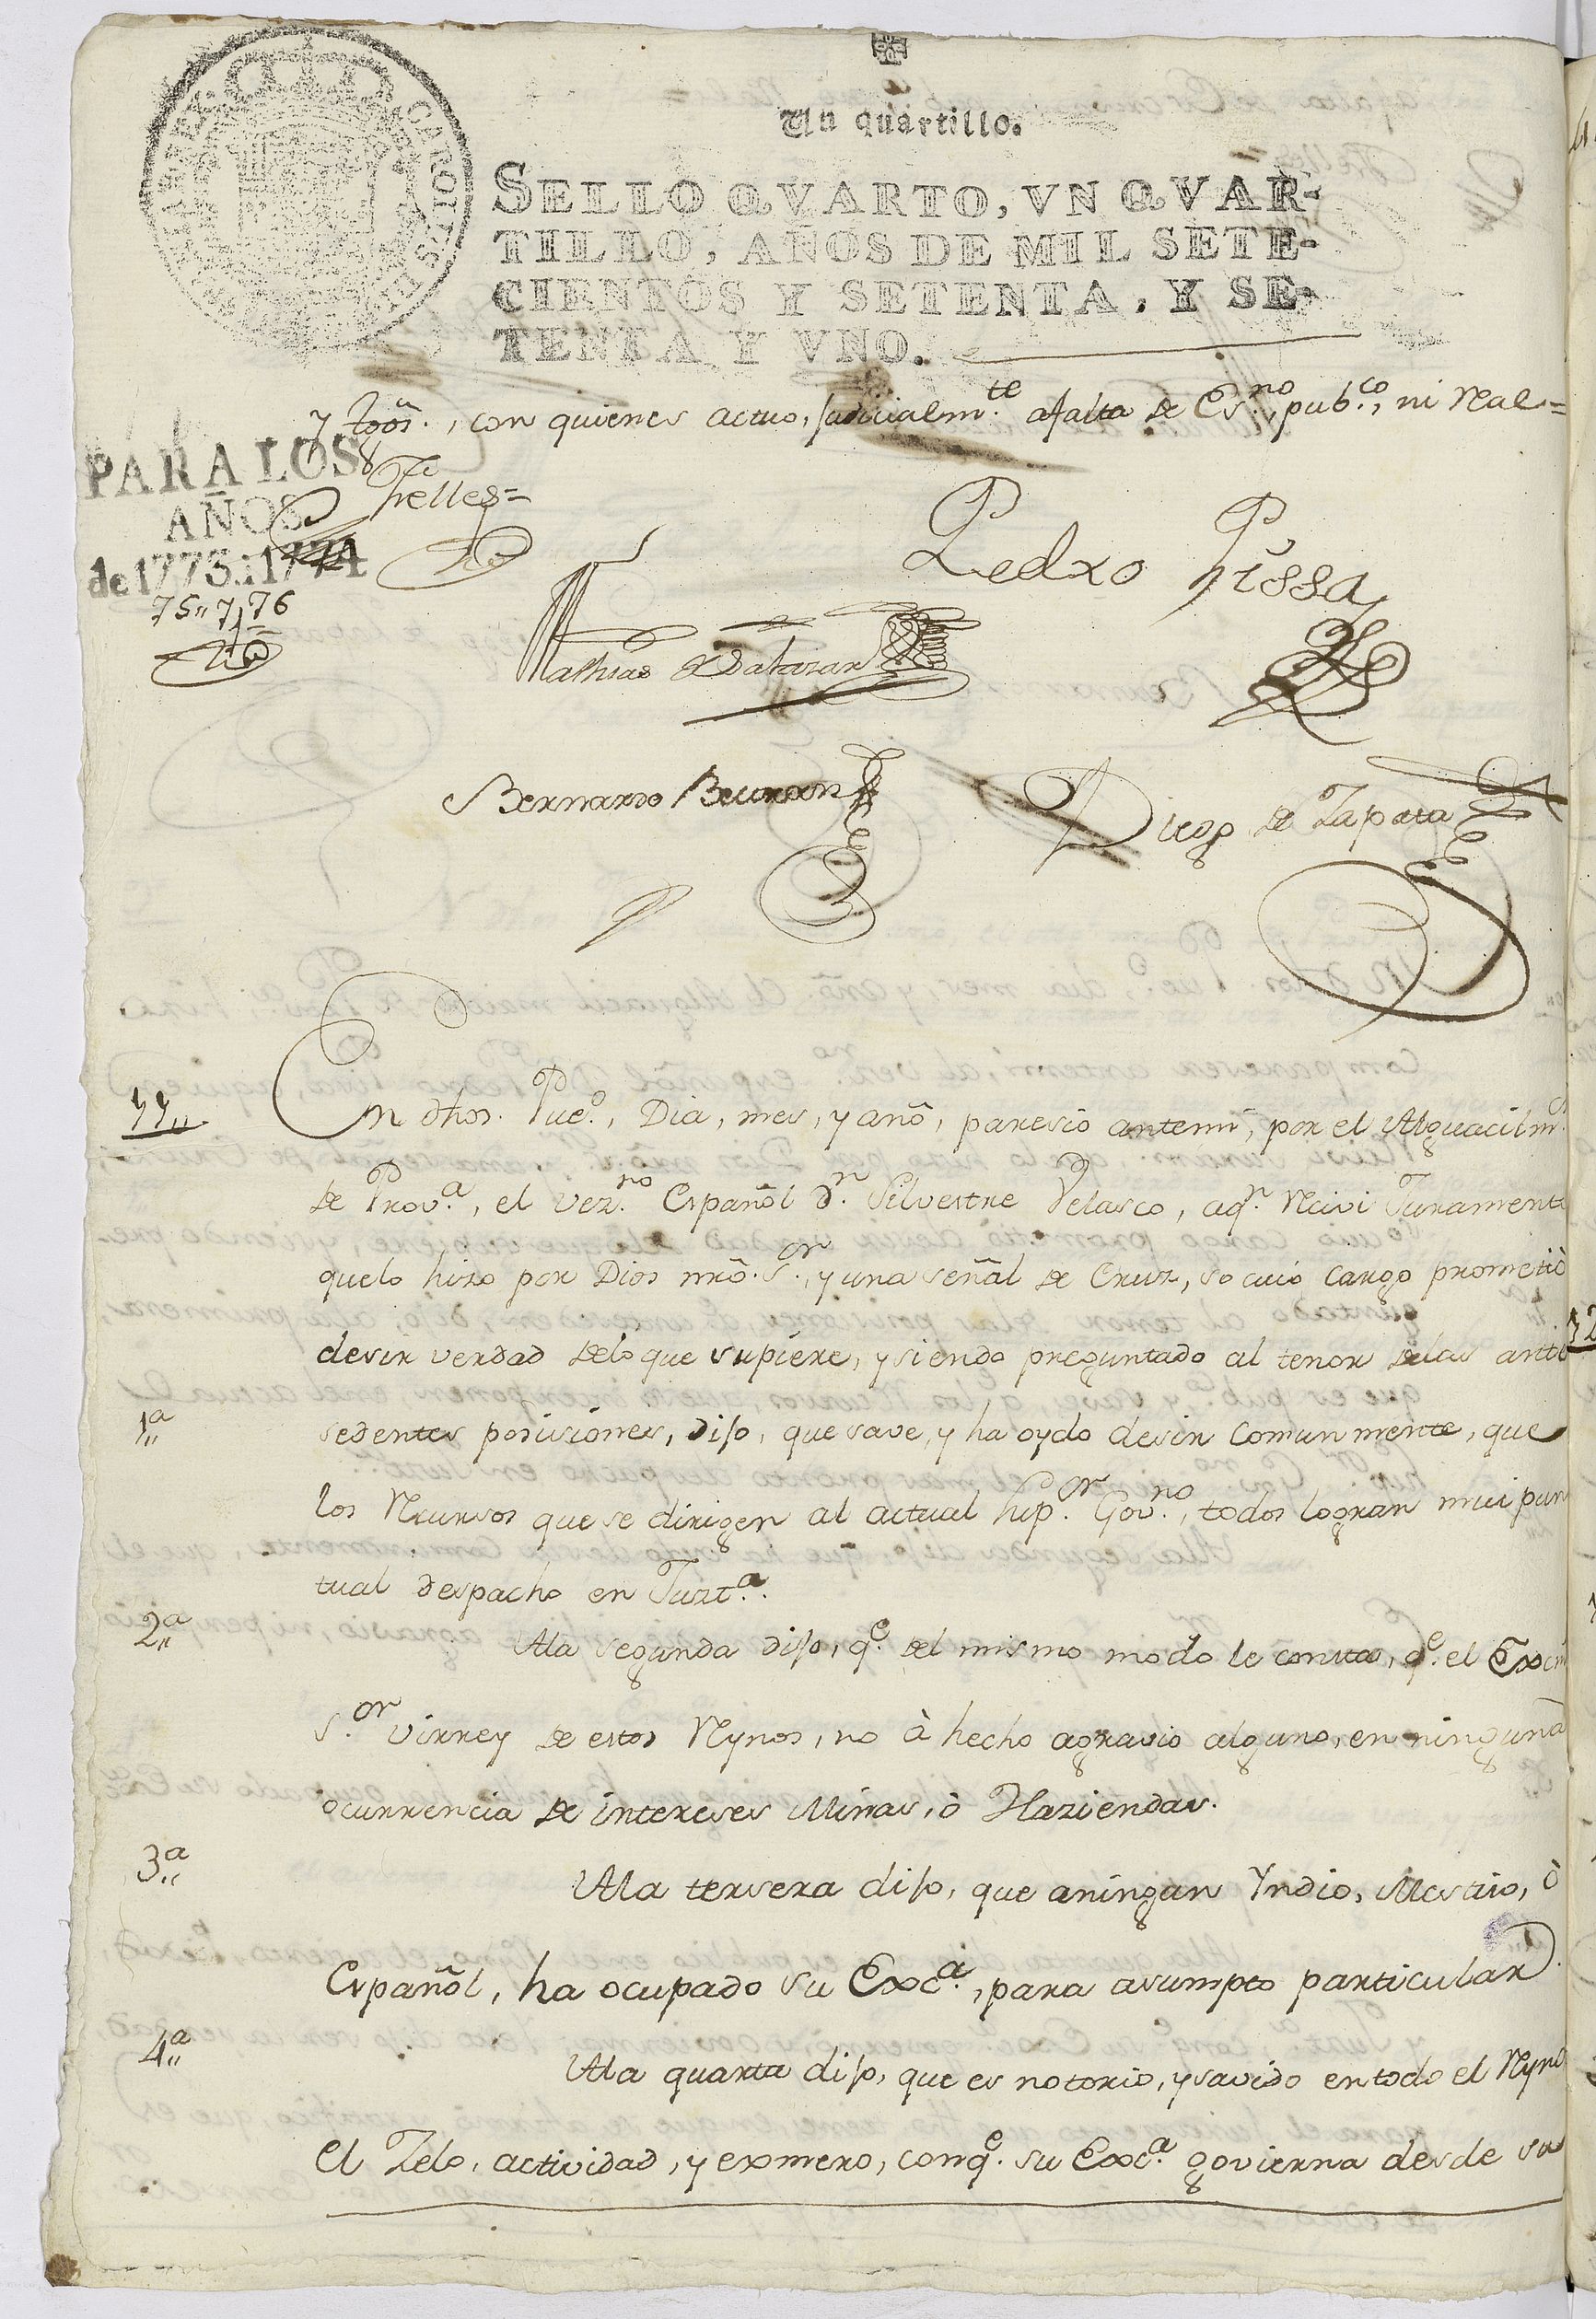 Un quartillo.
SELLO QVARTO, VN QVAR-
TILLO, AÑOS DE MIL SETE-
CIENTOS Y SETENTA, Y SE-
TENTA Y VNO.
CAROLUS III
y tgos., con quienes actuo, judicialm.te afalta de Es.no pub.co, ni Real=
PARA LOS
AÑOS
de 1773. i 1774
75,, y 76
Telles=
Pedro Pissa
Mathias de Salazar
Bernardo Becerra
Diego de Zapata
11,,
En dhos. Pue.o, Dia, mes, y año, paresio antemi, por el Alguacil m.
de Prov.a, el vez.no Español D.n Silvestre Velasco, aq.n Reciví Jurament
quelo hizo por Dios nrô. S.or, y una señal de Cruz, so cuio cargo prometiò
desir verdad delo que supiere, y siendo preguntado al tenor delas ante
1,,a
sedentes posisiones, dijo, que save, y ha oydo desir comunmente, que
los Recursos que se dirigen al actual Sup.or Gov.no, todos logran mui pun
tual despacho en Just.a.
2,,a
Ala segunda dijo, q.e del mismo modo le consta, q.e el Exm
S.or Virrey de estos Reynos, no à hecho agravio alguno, en ninguna
ocurrencia de intereses Minas, ò Haziendas.
3,,a
Ala tersera dijo, que aningun Yndio, Mestizo, ò
Español, ha ocupado su Exc.a, para asumpto particular.
4,,a
Ala quarta dijo, que es notorio, y savido entodo el Reyno
el Zelo, actividad, y exmero, conq.e su Exc.a govierna desde su